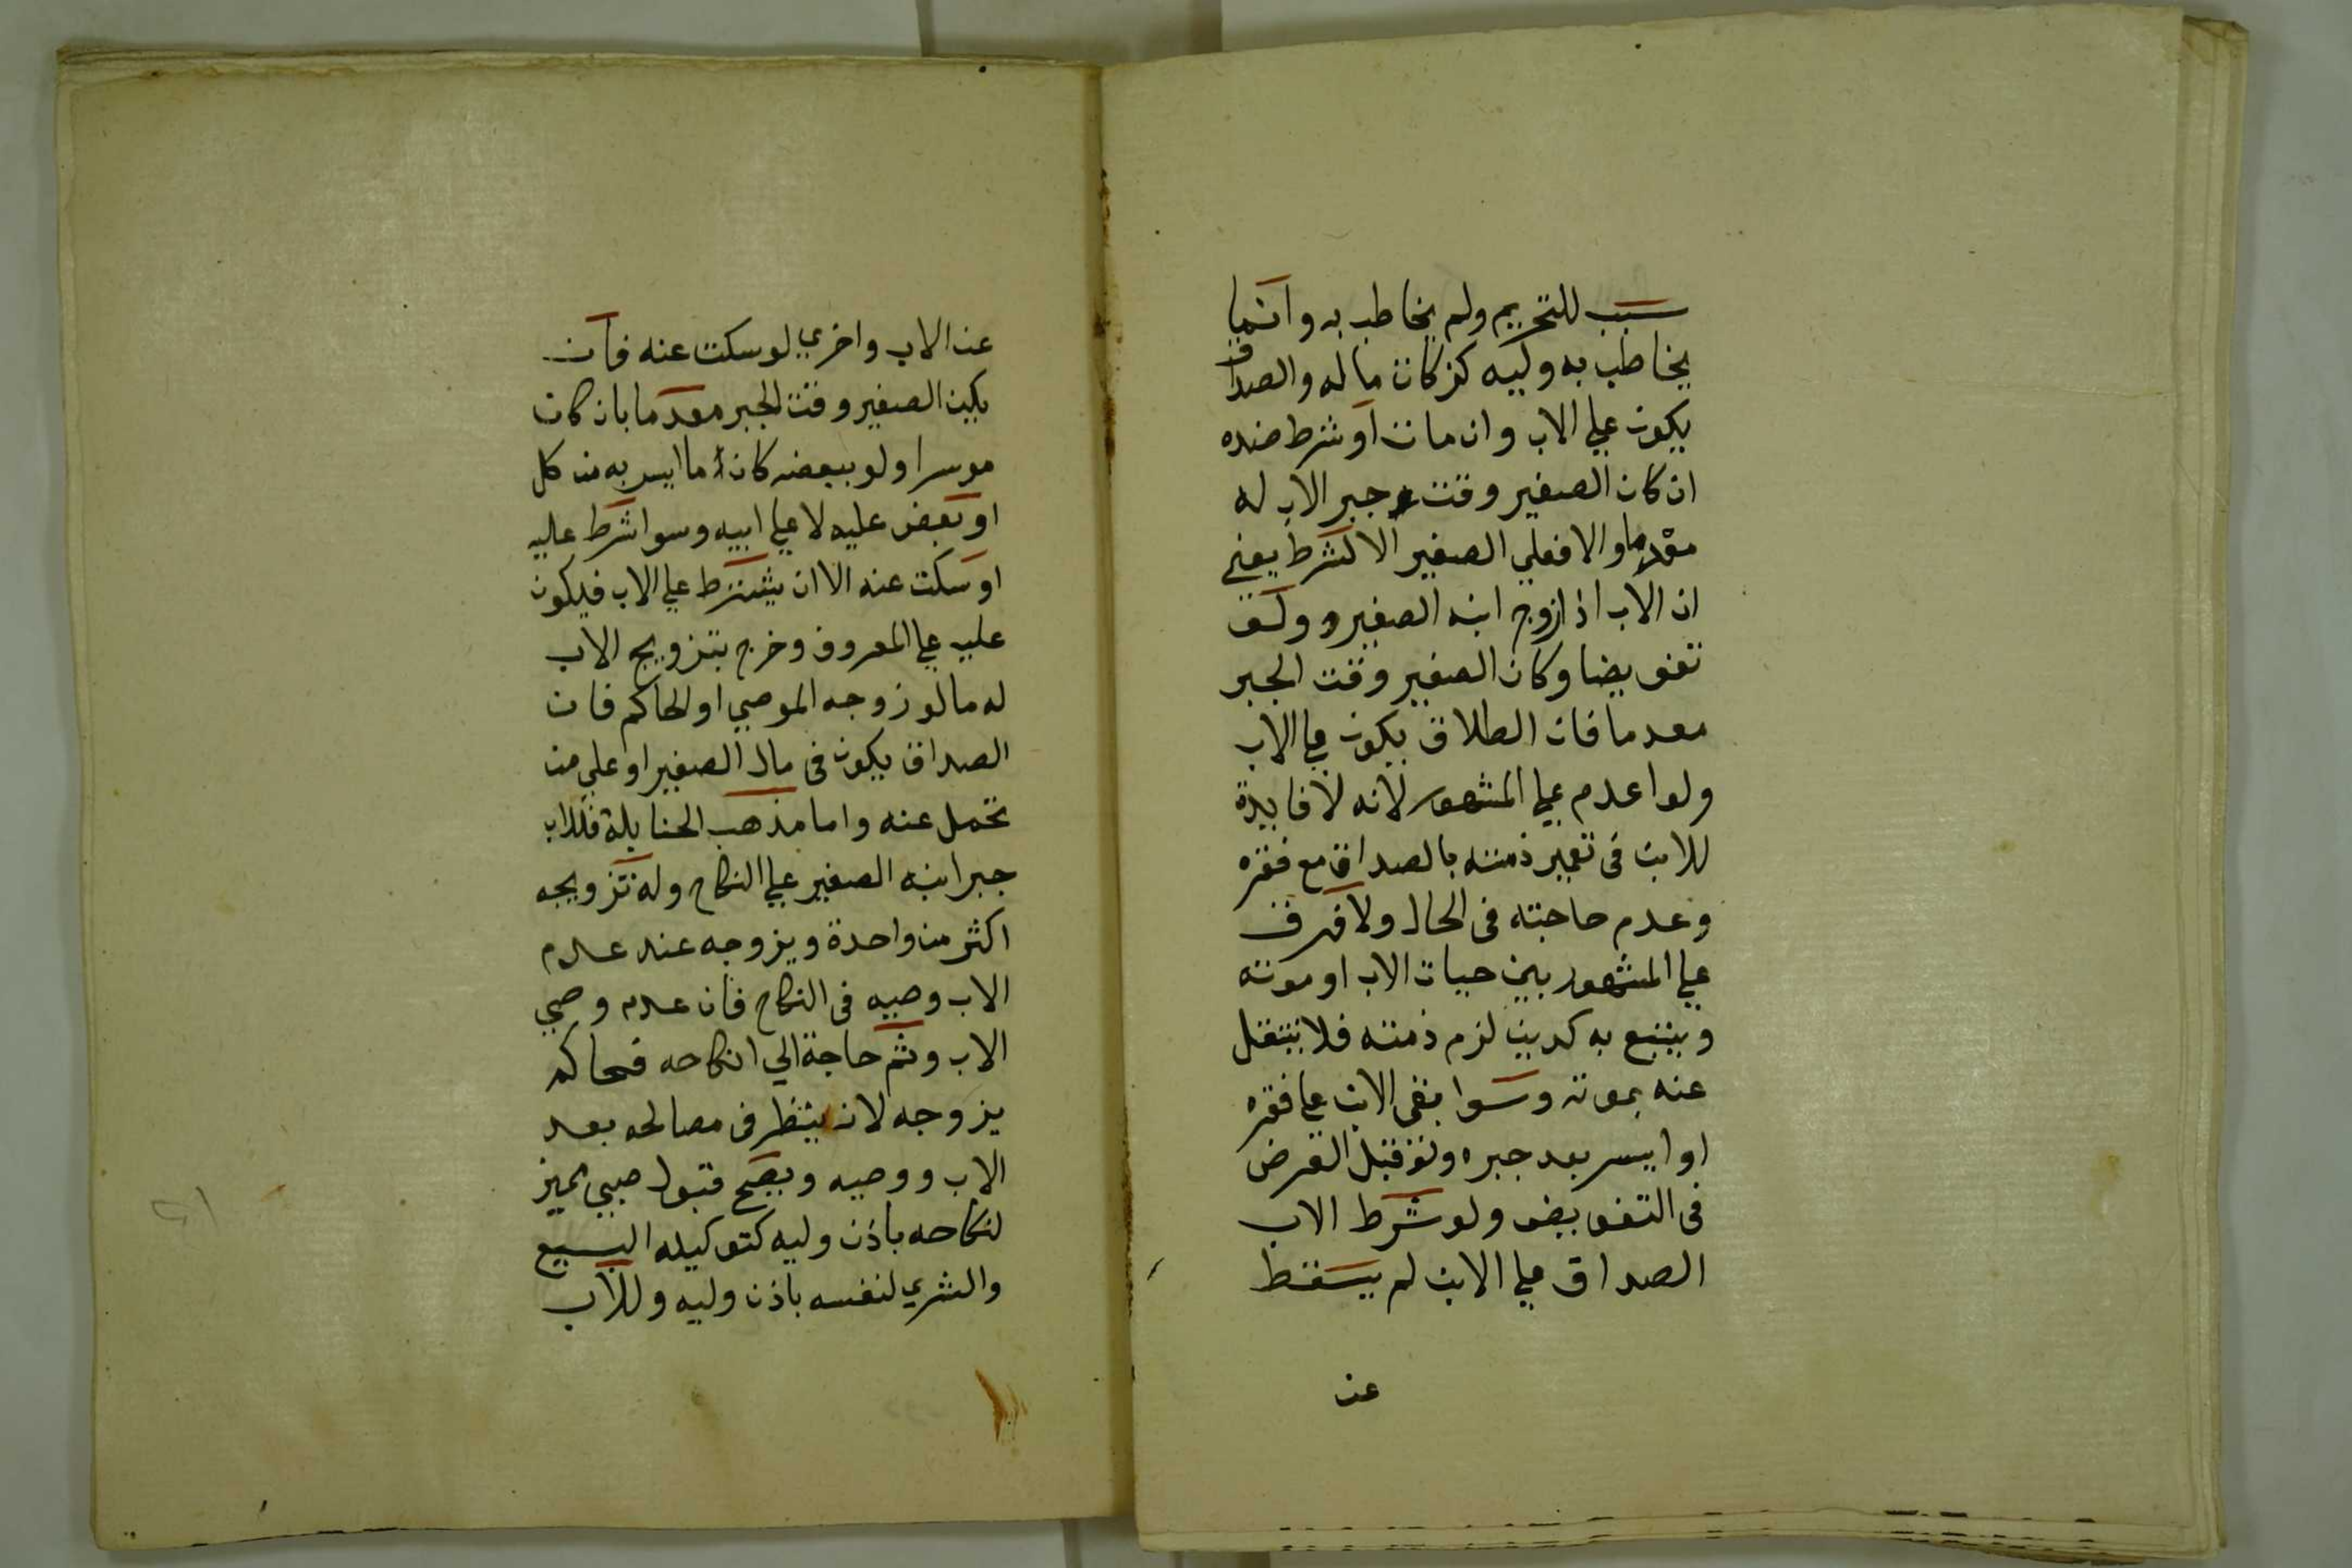 سبب للتحريم ولم يخاطب به وانما
يخاطب به وليه كزكاة ماله والصداق
يكون علي الاب وان مات او شرط ضده
ان كان الصغير وقت جبر الاب له
معدما والا فعلي الصغير الا لشرط يعني
ان الاب اذا زوج ابنه الصغير ولو
تفويضا وكان الصغير وقت الجبر
معدما فان الطلاق يكون علي الاب
ولو اعدم علي المشهور لانه لا فايدة
للابن في تعمير ذمته بالصداق مع فقره
وعدم حاجته في الحال ولا فرق
علي المشهور بين حيات الاب او موته
ويتبع به كدين لزم ذمته فلا ينتقل
عنه بموته وسوا بقي الابن علي فقره
او ايسر بعد جبره ولو قبل الفرض
في التفويض ولو شرط الاب
الصداق علي الابن لم يسقط
عن
عن الاب واخري لو سكت عنه فان
يكن الصغير وقت الجبر معدما بان كان
موسرا ولو ببعضه كان ما ايسر به من كل
او بعض عليه لا علي ابيه وسوا شرط عليه
او سكت عنه الا ان يشترط علي الاب فيكون
عليه علي المعروف وخرج بتزويج الاب
له ما لو زوجه الموصي او الحاكم فان
الصداق يكون في مال الصغير او علي من
تحمل عنه واما مذهب الحنابلة فللاب
جبر ابنه الصغير علي النكاح وله تزويجه
اكثر من واحدة ويزوجه عند عدم
الاب وصيه في النكاح فان عدم وصي
الاب وثم حاجة الي انكاحه فحاكم
يزوجه لانه ينظر في مصالحه بعد
الاب ووصيه ويصح قبول صبي مميز
لنكاحه باذن وليه كتوكيله البيع
والشري لنفسه باذن وليه وللاب